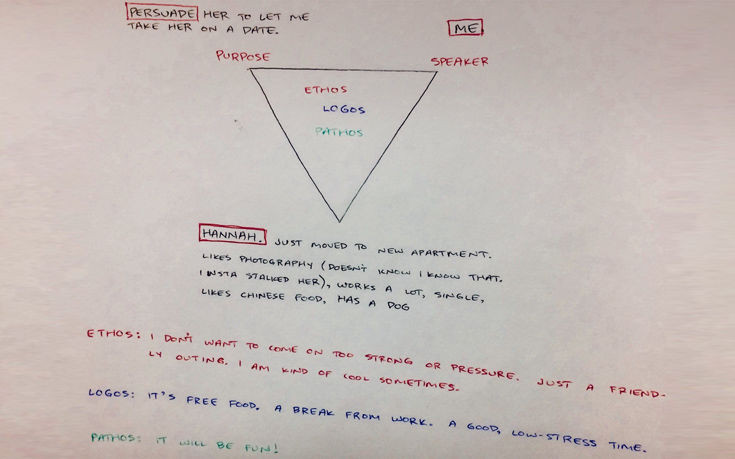 PERSUADE HER TO LET ME
TAKE HER ON A DATE.
ME
PURPOSE
SPEAKER
ETHOS
LOGOS
PATHOS
HANNAH. JUST MOVED TO NEW APARTMENT.
LIKES PHOTOGRAPHY (DOESN'T KNOW I KNOW THAT.
INSTA STALKED HER), WORKS A LOT, SINGLE,
LIKES CHINESE FOOD, HAS A DOG
ETHOS: I DON'T WANT TO COME ON TOO STRONG OR PRESSURE. JUST A FRIEND-
LY OUTING. I AM KIND OF COOL SOMETIMES.
LOGOS: IT'S FREE FOOD. A BREAK FROM WORK. A GOOD, LOW-STRESS TIME.
PATHOS: IT WILL BE FUN!